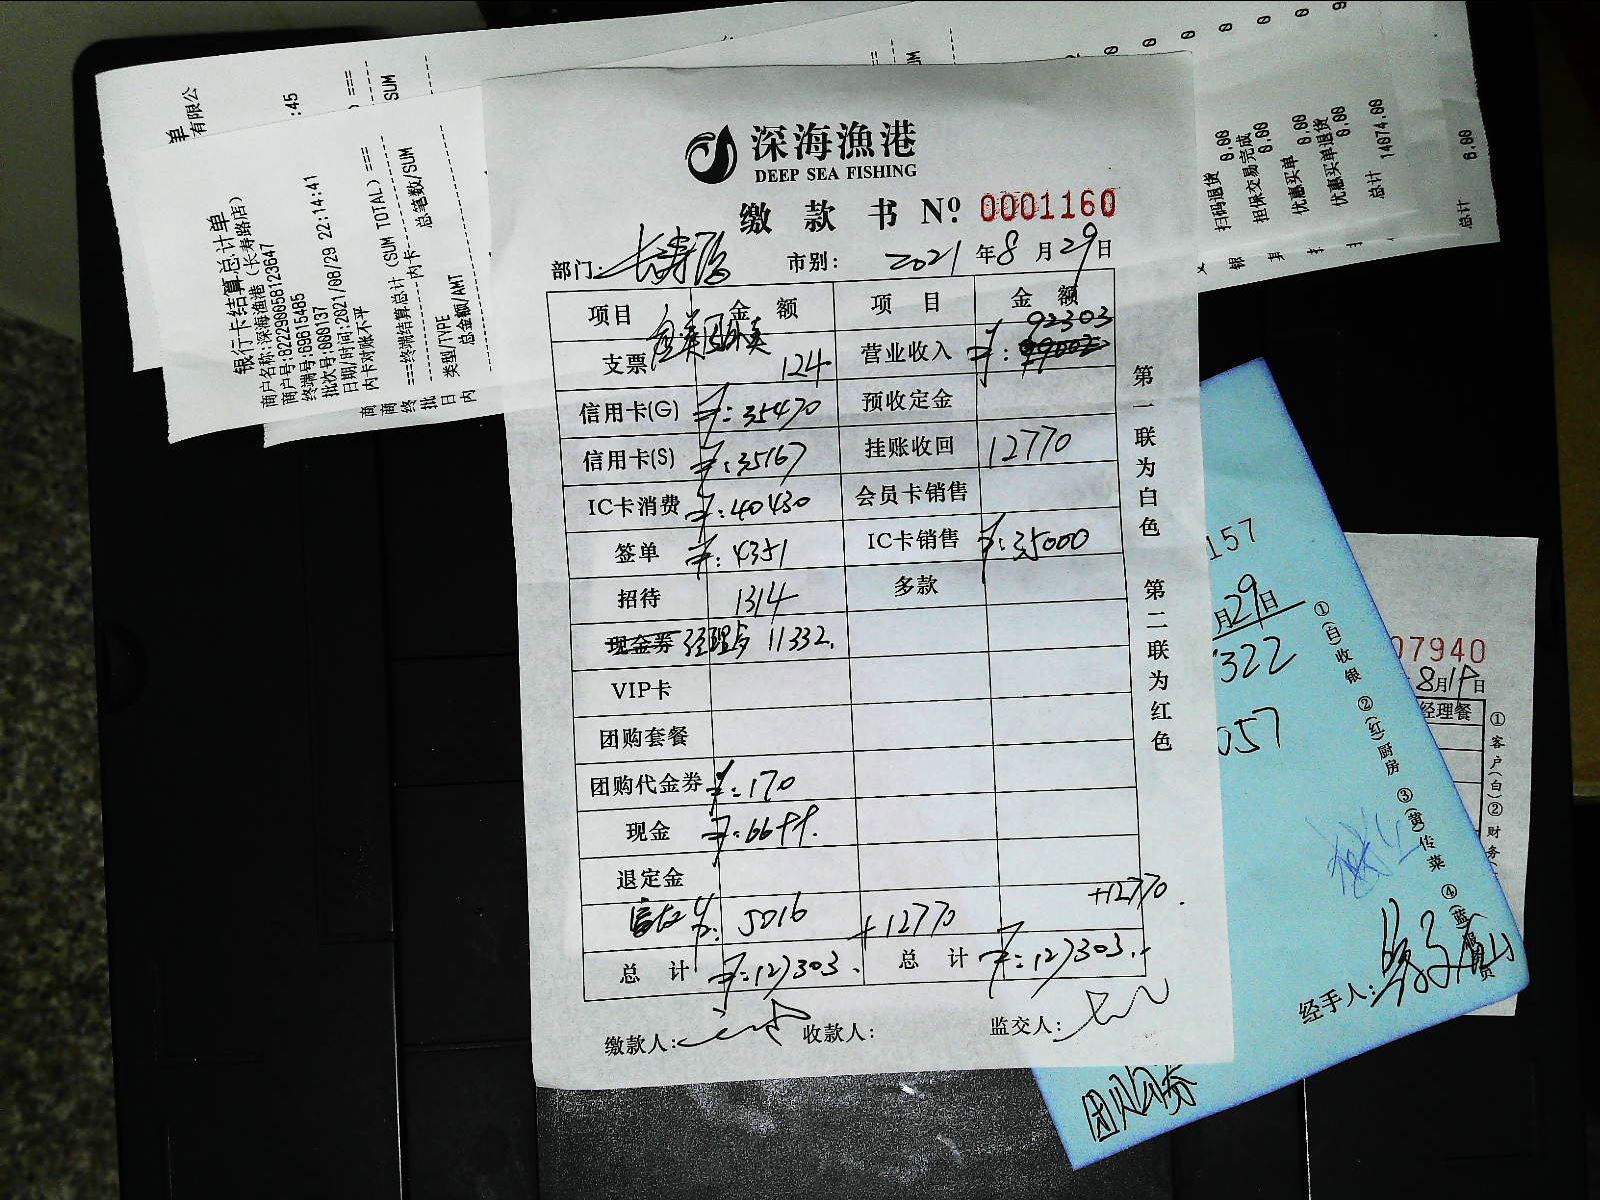 深海漁港
DEEP SEA FISHING
缴款书 Nº 0001160
部门: 长寿店 市别: 2021年8月29日
项目 金额 项目 金额
支票 美团外卖 124 营业收入 ¥: 92303
信用卡(G) ¥: 35470 预收定金
信用卡(S) ¥: 35167 挂账收回 12770
IC卡消费 ¥: 40430 会员卡销售
签单 ¥: 4351 IC卡销售 ¥: 35000
招待 1314 多款
现金券 经理卡 11332.
VIP卡
团购套餐
团购代金券 ¥: 170
现金 ¥: 6699.
退定金
5016 +12770 +12770.
总计 ¥: 127303. 总计 ¥: 127303.
缴款人: 收款人: 监交人:
第一联为白色 第二联为红色
银行卡结算总计单
商户名称:深海渔港(长寿路店)
商户号:822290058123647
终端号:69815485
批次号:000137
日期/时间:2021/08/29 22:14:41
内卡对账不平
===终端结算总计(SUM TOTAL)===
内卡
类型/TYPE 总笔数/SUM
总金额/AMT
单
有限公
:45
SUM
扫码退货 0.00
担保交易完成 0.00
优惠买单 0.00
优惠买单退货 0.00
总计 14074.00
总计 0.00
157
月29日
322
057
①(白)收银 ②(红)厨房 ③(黄)传菜 ④(蓝)服务员
经手人:
团购券
07940
8月19日
经理餐
①客户(白)②财务(